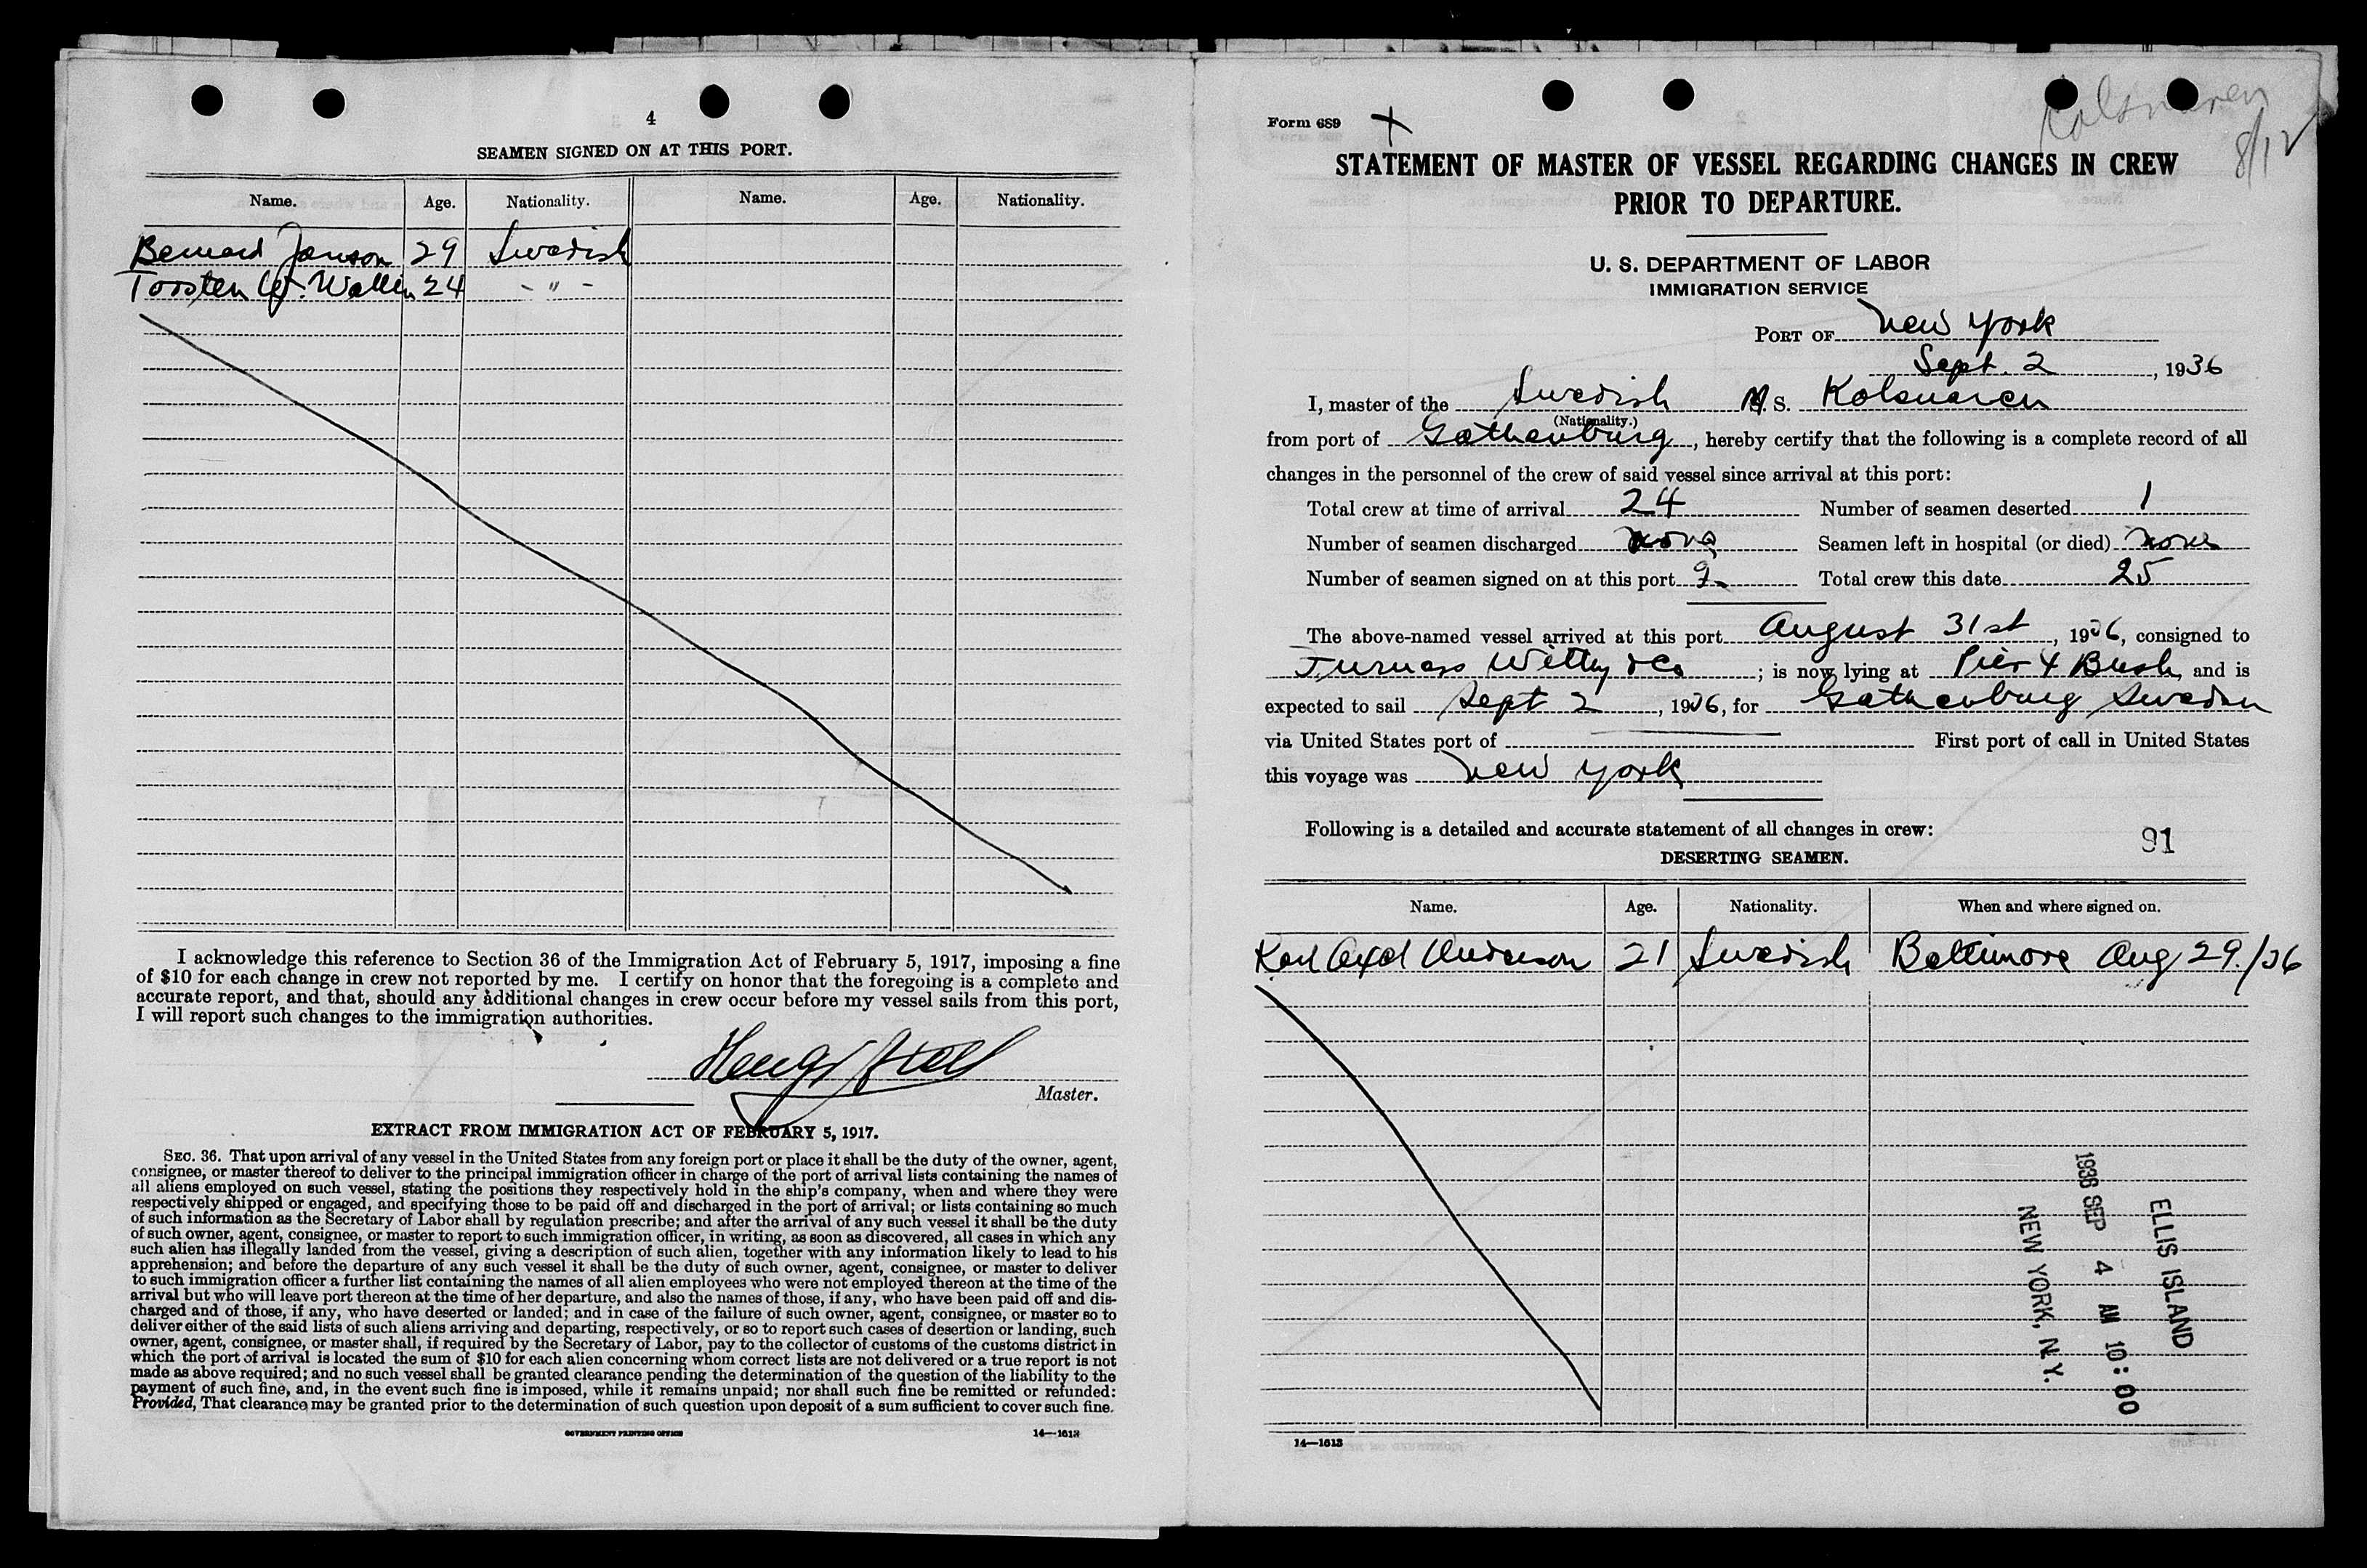 4
SEAMEN SIGNED ON AT THIS PORT.
Name. Age. Nationality. Name. Age. Nationality.
Bernard Janson 29 Swedish
Torsten W. Wallin 24 - " -
I acknowledge this reference to Section 36 of the Immigration Act of February 5, 1917, imposing a fine
of $10 for each change in crew not reported by me. I certify on honor that the foregoing is a complete and
accurate report, and that, should any additional changes in crew occur before my vessel sails from this port,
I will report such changes to the immigration authorities.
Master.
EXTRACT FROM IMMIGRATION ACT OF FEBRUARY 5, 1917.
SEC. 36. That upon arrival of any vessel in the United States from any foreign port or place it shall be the duty of the owner, agent,
consignee, or master thereof to deliver to the principal immigration officer in charge of the port of arrival lists containing the names of
all aliens employed on such vessel, stating the positions they respectively hold in the ship's company, when and where they were
respectively shipped or engaged, and specifying those to be paid off and discharged in the port of arrival; or lists containing so much
of such information as the Secretary of Labor shall by regulation prescribe; and after the arrival of any such vessel it shall be the duty
of such owner, agent, consignee, or master to report to such immigration officer, in writing, as soon as discovered, all cases in which any
such alien has illegally landed from the vessel, giving a description of such alien, together with any information likely to lead to his
apprehension; and before the departure of any such vessel it shall be the duty of such owner, agent, consignee, or master to deliver
to such immigration officer a further list containing the names of all alien employees who were not employed thereon at the time of the
arrival but who will leave port thereon at the time of her departure, and also the names of those, if any, who have been paid off and dis-
charged and of those, if any, who have deserted or landed; and in case of the failure of such owner, agent, consignee, or master so to
deliver either of the said lists of such aliens arriving and departing, respectively, or so to report such cases of desertion or landing, such
owner, agent, consignee, or master shall, if required by the Secretary of Labor, pay to the collector of customs of the customs district in
which the port of arrival is located the sum of $10 for each alien concerning whom correct lists are not delivered or a true report is not
made as above required; and no such vessel shall be granted clearance pending the determination of the question of the liability to the
payment of such fine, and, in the event such fine is imposed, while it remains unpaid; nor shall such fine be remitted or refunded:
Provided, That clearance may be granted prior to the determination of such question upon deposit of a sum sufficient to cover such fine.
GOVERNMENT PRINTING OFFICE 14—1613
Kolsnaren
8/12
Form 689 X
STATEMENT OF MASTER OF VESSEL REGARDING CHANGES IN CREW
PRIOR TO DEPARTURE.
U. S. DEPARTMENT OF LABOR
IMMIGRATION SERVICE
PORT OF New York
Sept. 2, 1936
I, master of the Swedish M. S. Kolsnaren
(Nationality.)
from port of Gothenburg, hereby certify that the following is a complete record of all
changes in the personnel of the crew of said vessel since arrival at this port:
Total crew at time of arrival 24 Number of seamen deserted 1
Number of seamen discharged none Seamen left in hospital (or died) none
Number of seamen signed on at this port 2 Total crew this date 25
The above-named vessel arrived at this port August 31st, 1936, consigned to
Furness Withy & Co; is now lying at Pier 4 Bush, and is
expected to sail Sept 2, 1936, for Gothenburg Sweden
via United States port of First port of call in United States
this voyage was New York
Following is a detailed and accurate statement of all changes in crew:
91
DESERTING SEAMEN.
Name. Age. Nationality. When and where signed on.
Karl Axel Anderson 21 Swedish Baltimore Aug 29./36
ELLIS ISLAND
1936 SEP 4 AM 10:00
NEW YORK, N.Y.
14—1613